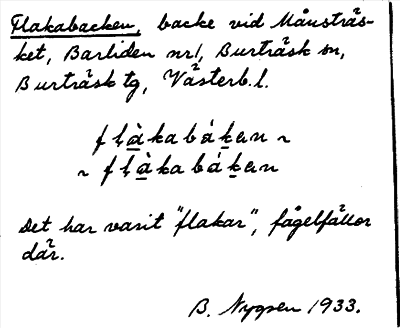 Flakabacken, backe vid Månsträs-
ket, Barliden nr 1, Burträsk sn,
Burträsk tg, Västerb. l.
flàkabáken ~
~ flàkabáken
Det har varit "flakar", fågelfällor
där.
B. Nygren 1933.